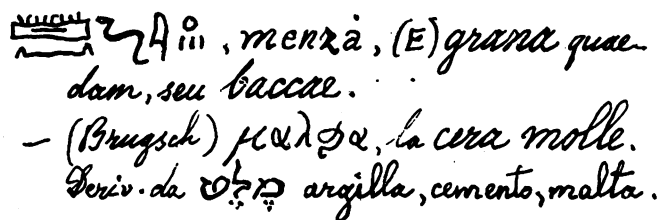 , menzȧ, (E) grana quae-
dam, seu baccae.
— (Brugsch) μαλϑα, la cera molle.
Deriv. da מֶלֶט argilla, cemento, malta.